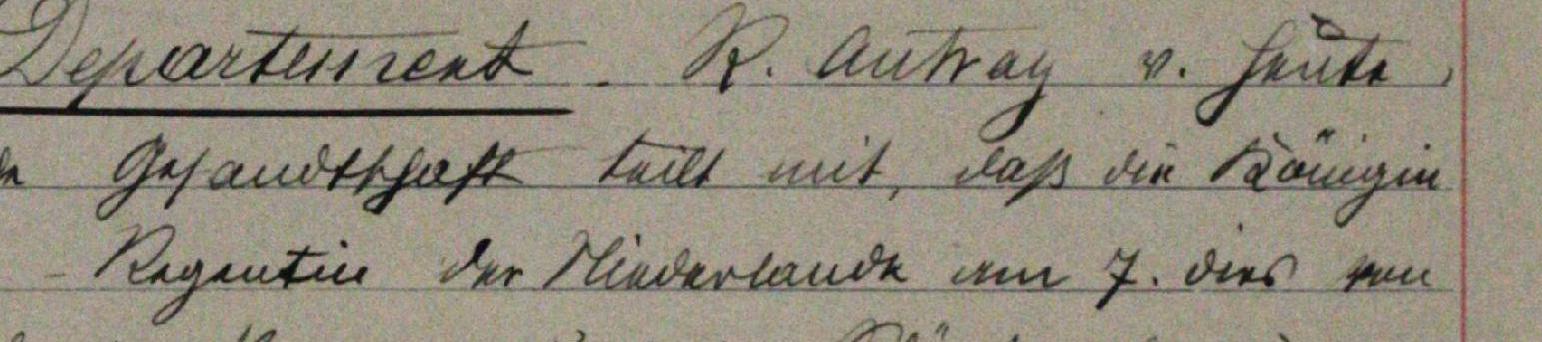 Departement. R. Antrag v. heute,
Gesandtschaft teilt mit, daß die Königin
- Regentin der Niederlande am 7. dies von